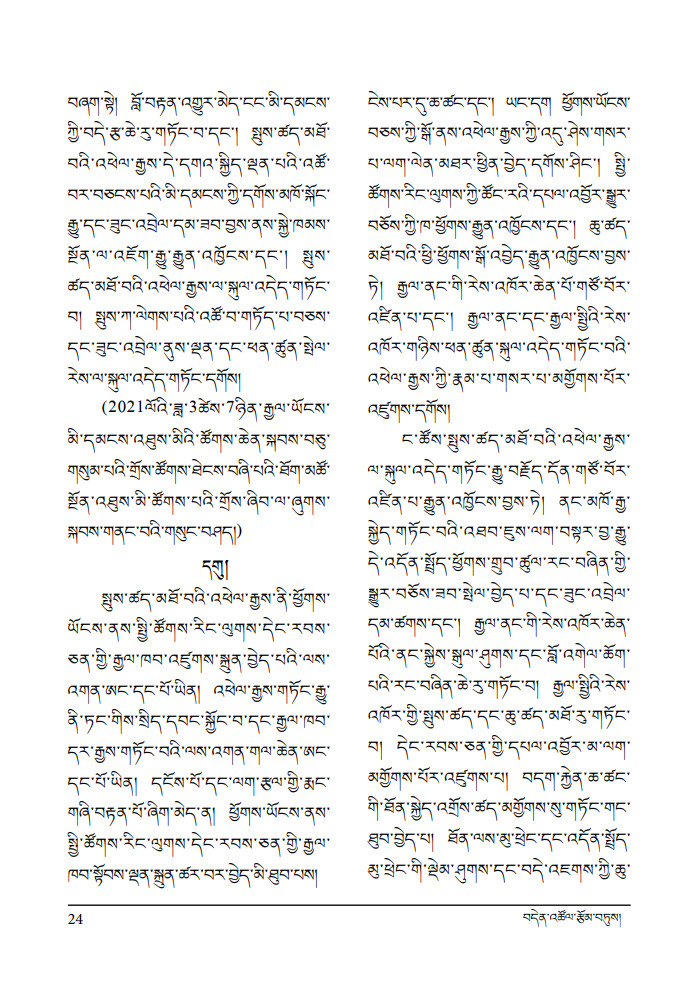 བཞག་སྟེ། བློ་བརྟན་འགྱུར་མེད་ངང་མི་དམངས་
ཀྱི་བདེ་རྩ་ཆེ་རུ་གཏོང་བ་དང་། སྤུས་ཚད་མཐོ་
བའི་འཕེལ་རྒྱས་དེ་དགའ་སྐྱིད་ལྡན་པའི་འཚོ་
བར་བཅངས་པའི་མི་དམངས་ཀྱི་དགོས་མཁོ་སྐོང་
རྒྱུ་དང་ཟུང་འབྲེལ་དམ་ཟབ་བྱས་ནས་སྐྱེ་ཁམས་
སྔོན་ལ་འཇོག་རྒྱུ་རྒྱུན་འཁྱོངས་དང་། སྤུས་
ཚད་མཐོ་བའི་འཕེལ་རྒྱས་ལ་སྐུལ་འདེད་གཏོང་
བ། སྤུས་ཀ་ལེགས་པའི་འཚོ་བ་གཏོད་པ་བཅས་
དང་ཟུང་འབྲེལ་ནུས་ལྡན་དང་ཕན་ཚུན་སྤེལ་
རེས་ལ་སྐུལ་འདེད་གཏོང་དགོས།
(2021ལོའི་ཟླ་3ཚེས་7ཉིན་རྒྱལ་ཡོངས་
མི་དམངས་འཐུས་མིའི་ཚོགས་ཆེན་སྐབས་བཅུ་
གསུམ་པའི་གྲོས་ཚོགས་ཐེངས་བཞི་པའི་ཐོག་མཚོ་
སྔོན་འཐུས་མི་ཚོགས་པའི་གྲོས་ཞིབ་ལ་ཞུགས་
སྐབས་གནང་བའི་གསུང་བཤད།)
དགུ།
སྤུས་ཚད་མཐོ་བའི་འཕེལ་རྒྱས་ནི་ཕྱོགས་
ཡོངས་ནས་སྤྱི་ཚོགས་རིང་ལུགས་དེང་རབས་
ཅན་གྱི་རྒྱལ་ཁབ་འཛུགས་སྐྲུན་བྱེད་པའི་ལས་
འགན་ཨང་དང་པོ་ཡིན། འཕེལ་རྒྱས་གཏོང་རྒྱུ་
ནི་ཏང་གིས་སྲིད་དབང་སྐྱོང་བ་དང་རྒྱལ་ཁབ་
དར་རྒྱས་གཏོང་བའི་ལས་འགན་གལ་ཆེན་ཨང་
དང་པོ་ཡིན། དངོས་པོ་དང་ལག་རྩལ་གྱི་རྨང་
གཞི་བརྟན་པོ་ཞིག་མེད་ན། ཕྱོགས་ཡོངས་ནས་
སྤྱི་ཚོགས་རིང་ལུགས་དེང་རབས་ཅན་གྱི་རྒྱལ་
ཁབ་སྟོབས་ལྡན་སྐྲུན་ཚར་བར་བྱེད་མི་ཐུབ་པས།
ངེས་པར་དུ་ཆ་ཚང་དང་། ཡང་དག ཕྱོགས་ཡོངས་
བཅས་ཀྱི་སྒོ་ནས་འཕེལ་རྒྱས་ཀྱི་འདུ་ཤེས་གསར་
པ་ལག་ལེན་མཐར་ཕྱིན་བྱེད་དགོས་ཤིང་། སྤྱི་
ཚོགས་རིང་ལུགས་ཀྱི་ཚོང་རའི་དཔལ་འབྱོར་སྒྱུར་
བཅོས་ཀྱི་ཁ་ཕྱོགས་རྒྱུན་འཁྱོངས་དང་། ཆུ་ཚད་
མཐོ་བའི་ཕྱི་ཕྱོགས་སྒོ་འབྱེད་རྒྱུན་འཁྱོངས་བྱས་
ཏེ། རྒྱལ་ནང་གི་རེས་འཁོར་ཆེན་པོ་གཙོ་བོར་
འཛིན་པ་དང་། རྒྱལ་ནང་དང་རྒྱལ་སྤྱིའི་རེས་
འཁོར་གཉིས་ཕན་ཚུན་སྐུལ་འདེད་གཏོང་བའི་
འཕེལ་རྒྱས་ཀྱི་རྣམ་པ་གསར་པ་མགྱོགས་པོར་
འཛུགས་དགོས།
ང་ཚོས་སྤུས་ཚད་མཐོ་བའི་འཕེལ་རྒྱས་
ལ་སྐུལ་འདེད་གཏོང་རྒྱུ་བརྗོད་དོན་གཙོ་བོར་
འཛིན་པ་རྒྱུན་འཁྱོངས་བྱས་ཏེ། ནང་མཁོ་རྒྱ་
སྐྱེད་གཏོང་བའི་འཐབ་ཇུས་ལག་བསྟར་བྱ་རྒྱུ་
དེ་འདོན་སྤྲོད་ཕྱོགས་གྲུབ་ཚུལ་རང་བཞིན་གྱི་
སྒྱུར་བཅོས་ཟབ་སྤེལ་བྱེད་པ་དང་ཟུང་འབྲེལ་
དམ་ཚགས་དང་། རྒྱལ་ནང་གི་རེས་འཁོར་ཆེན་
པོའི་ནང་སྐྱེས་སྒུལ་ཤུགས་དང་བློ་འགེལ་ཆོག་
པའི་རང་བཞིན་ཆེ་རུ་གཏོང་བ། རྒྱལ་སྤྱིའི་རེས་
འཁོར་གྱི་སྤུས་ཚད་དང་ཆུ་ཚད་མཐོ་རུ་གཏོང་
བ། དེང་རབས་ཅན་གྱི་དཔལ་འབྱོར་མ་ལག་
མགྱོགས་པོར་འཛུགས་པ། བདག་རྐྱེན་ཆ་ཚང་
གི་ཐོན་སྐྱེད་འགྲོས་ཚད་མགྱོགས་སུ་གཏོང་གང་
ཐུབ་བྱེད་པ། ཐོན་ལས་མུ་ཕྲེང་དང་འདོན་སྤྲོད་
མུ་ཕྲེང་གི་ལྡེམ་ཤུགས་དང་བདེ་འཇགས་ཀྱི་ཆུ་
24
བདེན་འཚོལ་རྩོམ་བཏུས།